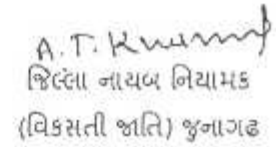 A.T.
જિલ્લા નાયબ નિયામક
(વિકસતી જાતિ) જુનાગઢ